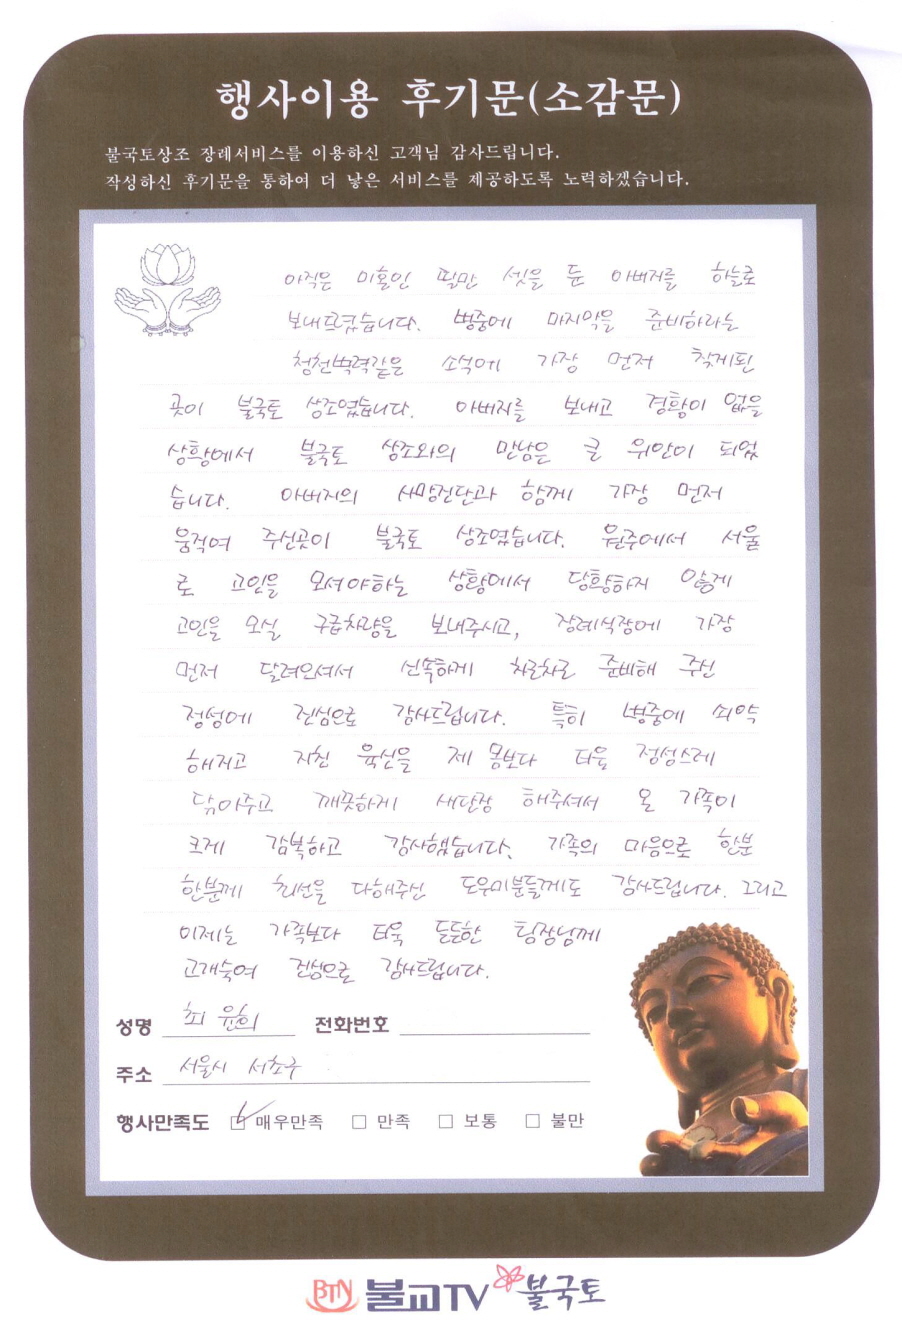 행사이용 후기문(소감문)
불국토상조 장례서비스를 이용하신 고객님 감사드립니다.
작성하신 후기문을 통하여 더 낳은 서비스를 제공하도록 노력하겠습니다.
아직은 미혼인 딸만 셋을 둔 아버지를 하늘로
보내드렸습니다. 병중에 마지막을 준비하라는
청천벽력같은 소식에 가장 먼저 찾게된
곳이 불국토 상조였습니다. 아버지를 보내고 경황이 없을
상황에서 불국토 상조와의 만남은 큰 위안이 되었
습니다. 아버지의 사망진단과 함께 가장 먼저
움직여 주신곳이 불국토 상조였습니다. 원주에서 서울
로 고인을 모셔야하는 상황에서 당황하지 않게
고인을 모실 구급차량을 보내주시고, 장례식장에 가장
먼저 달려오셔서 신속하게 차근차근 준비해 주신
정성에 진심으로 감사드립니다. 특히 병중에 쇠약
해지고 지친 육신을 제 몸보다 더욱 정성스레
닦아주고 깨끗하게 새단장 해주셔서 온 가족이
크게 감복하고 감사했습니다. 가족의 마음으로 한분
한분께 최선을 다해주신 도우미분들께도 감사드립니다. 그리고
이제는 가족보다 더욱 든든한 팀장님께
고개숙여 진심으로 감사드립니다.
성명 최윤희 전화번호
주소 서울시 서초구
행사만족도 ☑ 매우만족 □ 만족 □ 보통 □ 불만
BTN 불교TV 불국토